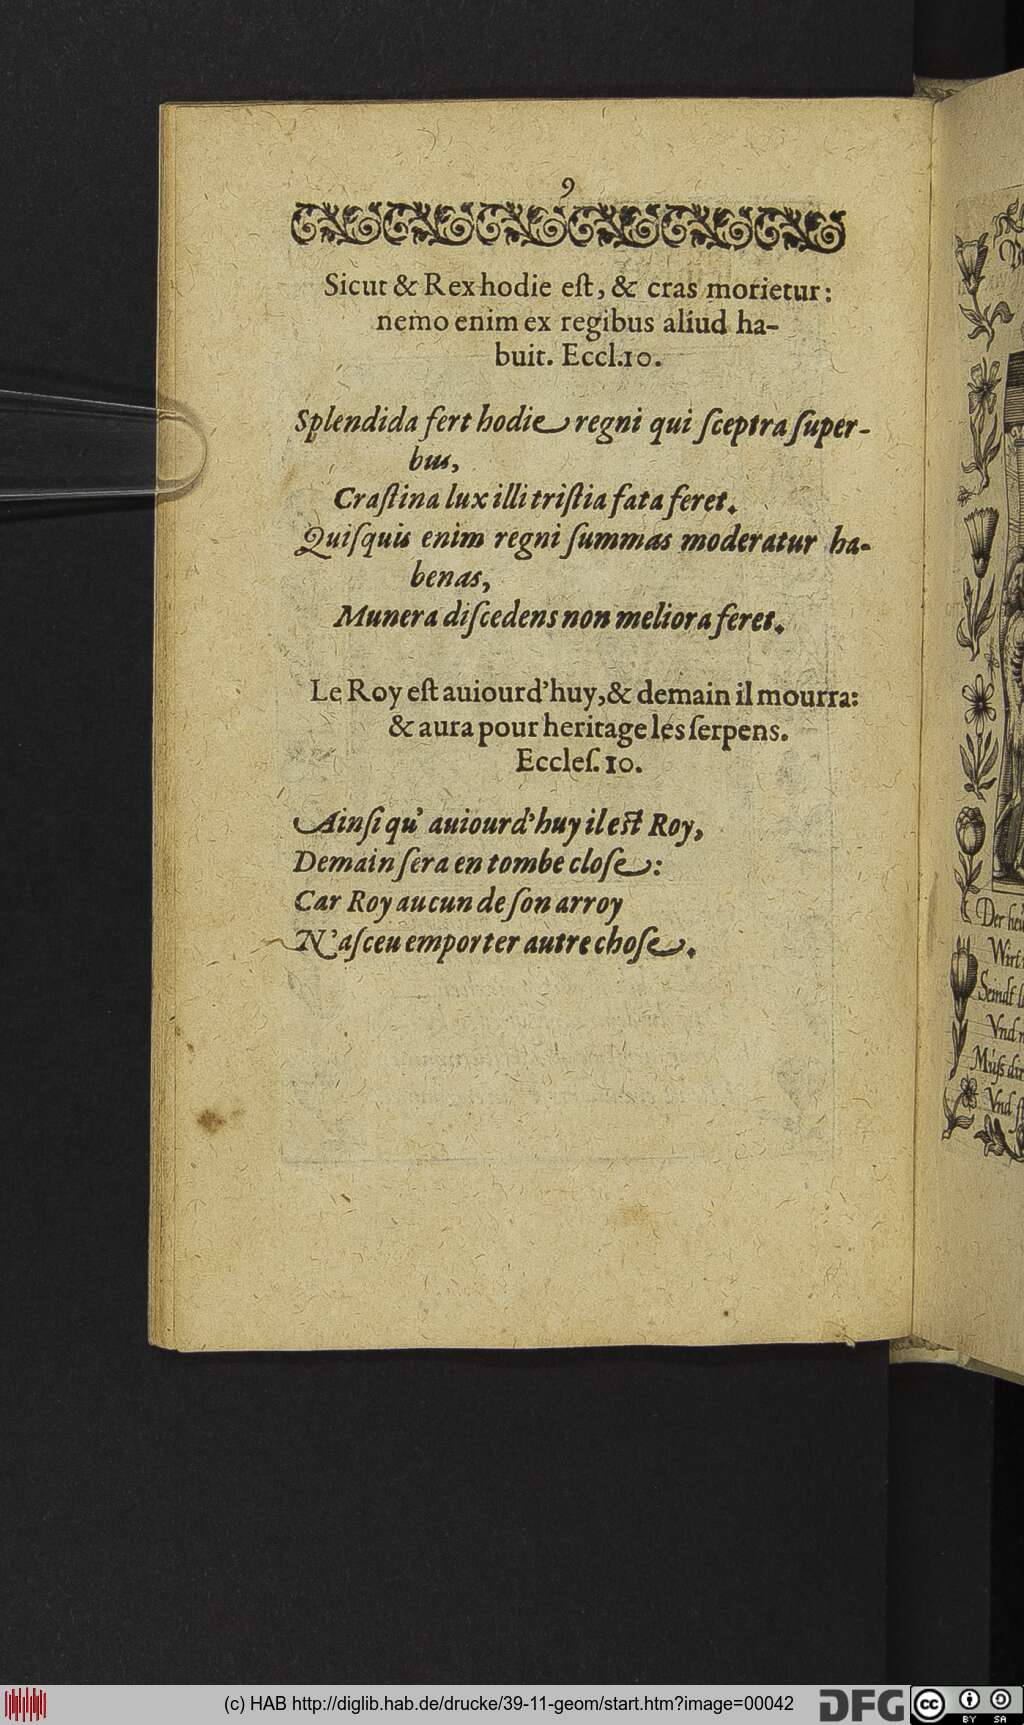 9
Sicut & Rex hodie eſt, & cras morietur:
nemo enim ex regibus aliud ha-
buit. Eccl.10.
Splendida fert hodie regni qui ſceptra ſuper-
bus,
Craſtina lux illi triſtia fata feret.
Quiſquis enim regni ſummas moderatur ha-
benas,
Munera diſcedens non meliora feret.
Le Roy eſt auiourd'huy, & demain il mourra:
& aura pour heritage les ſerpens.
Eccleſ. 10.
Ainſi qu' auiourd'huy il eſt Roy,
Demain ſera en tombe cloſe:
Car Roy aucun de ſon arroy
N'a ſceu emporter autre choſe.
Der
Wirt
Seindt
Vnd
Muſs
Vnd
(c) HAB http://diglib.hab.de/drucke/39-11-geom/start.htm?image=00042
DFG
cc BY SA